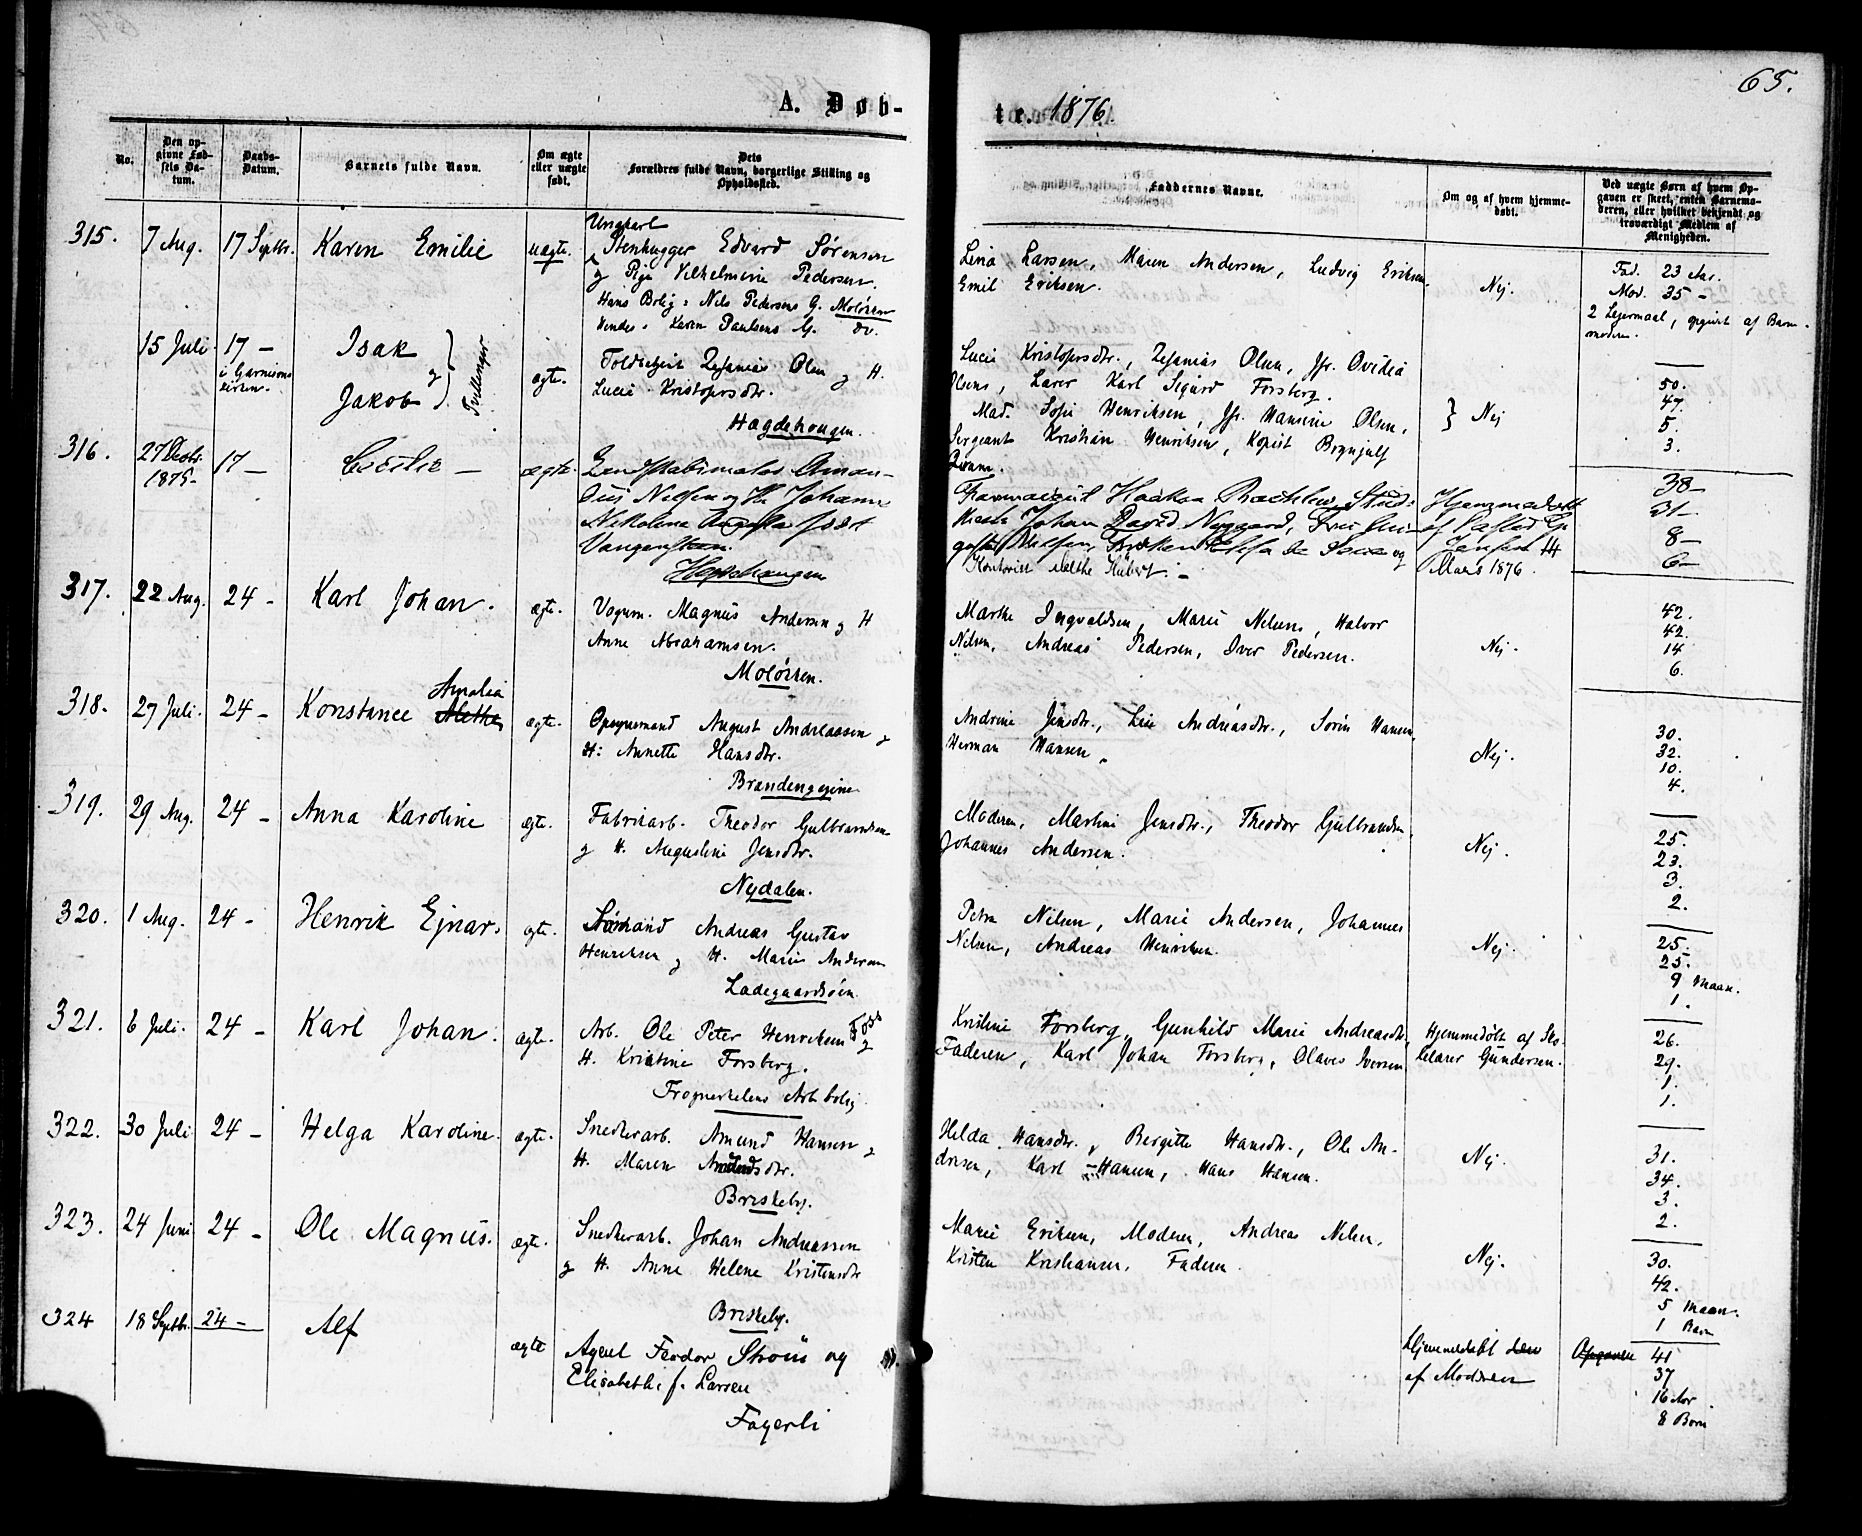 65.
A. Døb-
te. 1876.
No.
Den op-
givne Fød-
sels Da-
tum.
Daabs-
Datum.
Barnets fulde Navn.
Om ægte
eller uægte
født.
Dets
Forældres fulde Navn, borgerlige Stilling og
Opholdssted.
Faddernes Navne.
Om og af hvem hjemme-
døbt.
Ved uægte Børn af hvem Op-
gaven er skeet, enten Barnemo-
deren, eller hvilket bekjendt og
troværdigt Medlem af
Menigheden.
315. 7 Aug. 17 Septbr. Karen Emilie uægte.
Ungkarl
Stenhugger Edvard Sørensen
og Pige Vilhelmine Pedersen.
Hans Bolig: Nils Pedersens G. Moløkken
Hendes: Karen Paulsens G. do.
Lina Larsen, Maren Andersen, Ludvig Eriksen
Emil Eriksen.
Nej.
Fad. 23 Aar.
Mod. 35 -
2 Lejermaal, opgivet af Barne-
moderen.
15 Juli 17 -
i Garnisons
kirken.
Isak
og
Jakob
Tvillinger
ægte.
Toldbetjent Zefanias Olsen og H.
Lucie Kristofersdtr.
Hægdehougen.
Lucie Kristofersdtr., Zefanias Olsen, Jfr. Ovidia
Olsens, Lærer Karl Sigurd Forsberg.
Mad. Sofie Henriksen, Jfr. Hansine Olsen,
Sergeant Kristian Henriksen, Kopist Brynjulf
Nej
50.
47.
5.
3.
316. 27 Octbr.
1875- 17 - Cecilie - ægte.
Aman-
dus Nielsen og H. Johanne
Nikoline Augusta født
Vangensteen.
Hægdehaugen
Farmaceut Haakon Stud:
Johan David Nygaard, Fru Au-
gusta Nielsen, Frøken og
Kontorist Hubert. -
Hjemmedøbt
af Pastor
Jensen 14
Marts 1876.
38-
31-
8-
6-
317. 22 Aug. 24 - Karl Johan. ægte.
Vognm. Magnus Andersen og H
Anne Abrahamsen.
Moløkken.
Marthe Ingvaldsen, Marie Nielsen, Halvor
Nilsen, Andreas Pedersen, Iver Pedersen.
Nej.
42.
42.
14
6.
318. 27 Juli. 24 - Konstance Amalia
Alethe
ægte.
Opsynsmand August Andreassen og
H: Annette Hansdtr.
Brandengegine
Andrine Jensdtr., Lise Andreasdtr., Søren Hansen,
Herman Hansen.
Nej.
30.
32.
10.
4.
319. 29 Aug. 24 - Anna Karoline ægte.
Fabrikarb. Theodor Gulbrandsen
og H. Augustine Jensdtr.
Nydalen.
Moderen, Martine Jensdtr., Theodor Gulbrandsen
Johannes Andersen.
Nej.
25.
23.
3.
2.
320. 1 Aug. 24 - Henrik Ejnar. ægte.
Sømand Andreas Gustav
Henriksen og H. Marie Andersen
Ladegaardsøen.
Petra Nilsen, Marie Andersen, Johannes
Nilsen, Andreas Henriksen.
Nej.
25.
25.
9 Maan.
1.
321. 6 Juli. 24 - Karl Johan. ægte.
Arb. Ole Peter Henriksen Foss
og
H. Kristine Forsberg.
Frognerkilens Arb.bolig
Kristine Forsberg, Gunhild Marie Andreasdtr,
Faderen, Karl Johan Forsberg, Olaves Iversen
Hjemmedøbt af Sko-
lelærer Gundersen.
26.
29.
1.
1.
322. 30 Juli 24 - Helga Karoline. ægte.
Snedkerarb. Amund Hansen og
H. Maren Amundsdtr.
Briskeby.
Helda Hansdtr., Bergitte Hansdtr., Ole An-
dresen, Karl Hansen, Hans Hansen.
Nej.
31.
34.
3.
2.
323. 24 Juni 24 - Ole Magnus. ægte.
Snedkerarb. Johan Andreassen
og H. Anne Helene Kristensdtr
Briskeby.
Marie Eriksen, Moderen, Andreas Nilsen,
Kristen Kristiansen, Faderen.
Nej.
30.
42.
5 Maan.
1 Barn
324 18 Septbr. 24 - Alf ægte
Agent Feodor Strøm og
Elisabeth f. Larsen
Fagerli
Hjemmedøbt den
af Moderen
Opgaven 41
37
16 Aar
8 Børn